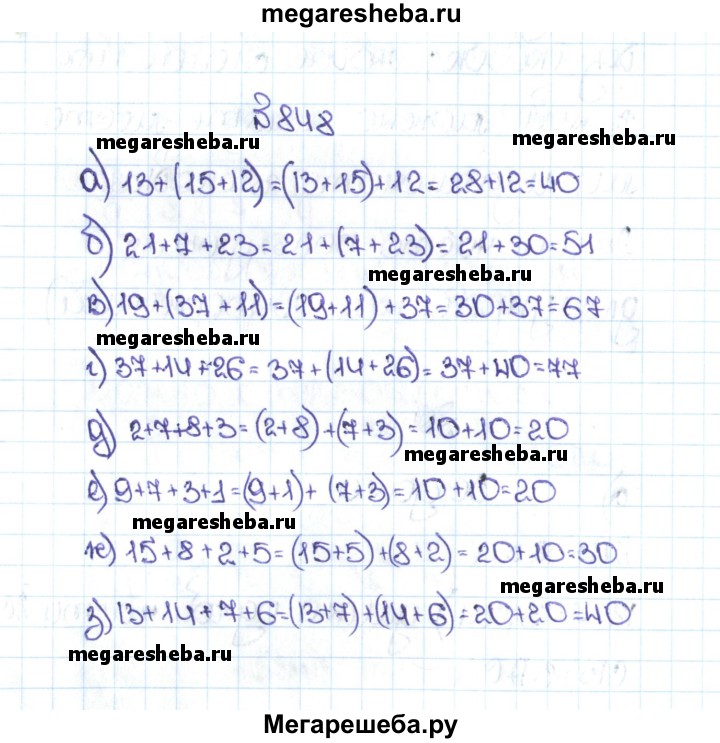 megaresheba.ru
В 848
megaresheba.ru
megaresheba.ru
а) 13+(15+12)=(13+15)+12=28+12=40
б) 21+7+23=21+(7+23)=21+30=51
megaresheba.ru
в) 19+(37+11)=(19+11)+37=30+37=67
megaresheba.ru
г) 37+14+26=37+(14+26)=37+40=77
д) 2+7+8+3=(2+8)+(7+3)=10+10=20
megaresheba.ru
е) 9+7+3+1=(9+1)+(7+3)=10+10=20
megaresheba.ru
ж) 15+8+2+5=(15+5)+(8+2)=20+10=30
megaresheba.ru
з) 13+14+7+6=(13+7)+(14+6)=20+20=40
megaresheba.ru
Мегарешеба.ру